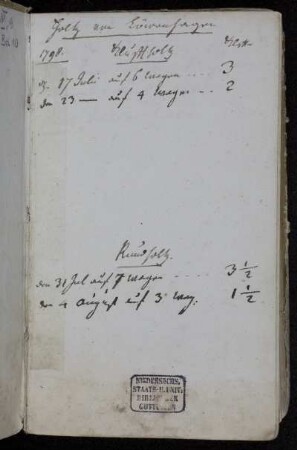 Holtz von Löwenhagen
1798. Klufftholtz Klftr
d. 17 Juli auf 6 Wagen --- 3
den 23 — auf 4 Wagen -- 2
Rundholtz
den 31 Jul auf 7 Wagen --- 3 1/2
den 4 August auf 3 Wag: 1 1/2.
NIEDERSÄCHS.
STAATS-U.UNIV.
BIBLIOTHEK
GÖTTINGEN